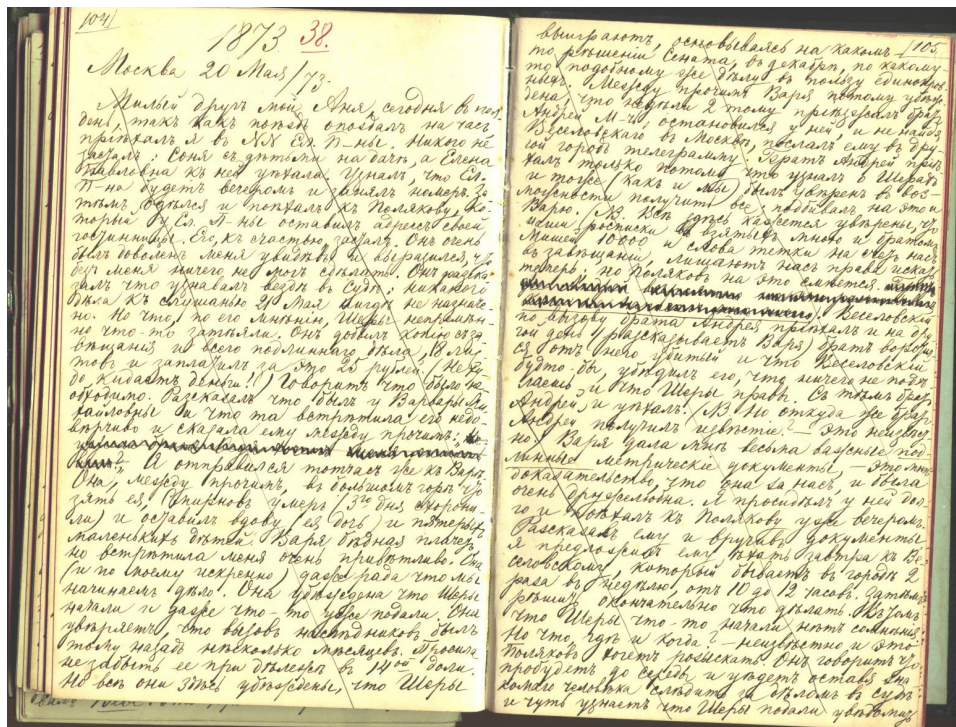 104
1873. 38.
Москва 20 Мая/73.
Милый другъ мой Аня, сегодня въ пол-
день, такъ какъ поѣздъ опоздалъ на часъ,
пріѣхалъ я въ NN Ел. П-ны. Никого не
засталъ: Соня съ дѣтьми на дачѣ, а Елена
Павловна къ ней уѣхала. Узналъ, что Ел.
П-на будетъ вечеромъ и занялъ номеръ. За-
тѣмъ одѣлся и поѣхалъ къ Полякову, ко-
торый у Ел. П-ны оставилъ адрессъ своей
гостинницы. Его, къ счастью, засталъ. Онъ очень
былъ доволенъ меня увидѣвъ и выразился что
безъ меня ничего не могъ сдѣлать. Онъ разска-
залъ что узнавалъ вездѣ въ судѣ: никакого
дѣла къ слушанью 21 Мая нигдѣ не назначе-
но. Но что, по его мнѣнію, Шеры непремѣн-
но что-то затѣяли. Онъ добылъ копію съ за-
вѣщанія и всего подлиннаго дѣла, 18 лис-
товъ и заплатилъ за это 25 рублей. (Не ху-
до кидаетъ деньги!!) Говоритъ что было не-
обходимо. Разсказалъ что былъ у Варвары Ми-
хайловны и что та встрѣтила его недо-
вѣрчиво и сказала ему между прочимъ:
Я отправился тотчасъ же къ Варѣ.
Она, между прочимъ, въ большомъ горѣ:
зять ея, Смирновъ умеръ (3го дня схорони-
ли) и оставилъ вдову (ея дочь) и пятерыхъ
маленькихъ дѣтей. Варя бѣдная плачетъ,
но встрѣтила меня очень привѣтливо. Она
(и по моему искренно) даже рада что мы
начинаемъ дѣло. Она убѣждена что Шеры
начали и даже что-то уже подали. Она
увѣряетъ, что вызовъ наслѣдниковъ былъ
тому назадъ нѣсколько мѣсяцевъ. Просила
не забыть ее при дѣленья въ 14ой доли.
Но всѣ они здѣсь убѣждены, что Шеры
105.
выиграютъ, основываясь на какомъ-
то рѣшеніи Сената, въ декабрѣ, по какому-
то подобному же дѣлу въ пользу единокров-
ныхъ. Между прочимъ Варя потому убѣж-
дена, что недѣли 2 тому пріѣзжалъ братъ
Андрей М-чь, остановился у ней и не найдя
Веселовскаго въ Москвѣ, послалъ ему въ дру-
гой городъ телеграмму. Братъ Андрей прі-
ѣхалъ только потому что узналъ о Шерахъ
и тоже (какъ и мы) былъ увѣренъ въ воз-
можности получить все, подбивалъ на это и
Варю. (NВ. Всѣ здѣсь кажется увѣрены, что
наши росписки во взятыхъ мною и братомъ
Мишей 10000 и слова тетки на счетъ насъ
въ завѣщаніи, лишаютъ насъ права искать
теперь, но Поляковъ на это смѣется.
Веселовскій
по вызову брата Андрея пріѣхалъ и на дру-
гой день (разсказываетъ Варя) братъ воротил-
ся отъ него убитый и что Веселовскій
будто-бы убѣдилъ его, что ничего не подѣ-
лаешь и что Шеры правы. Съ тѣмъ братъ
Андрей и уѣхалъ. (NВ. Но откуда же братъ
Андрей получилъ извѣстіе? — Это неизвѣст-
но). Варя дала мнѣ весьма важные под-
линные метрическіе документы, — это мнѣ
доказательство, что она за насъ, и была
очень дружелюбна. Я просидѣлъ у ней дол-
го и поѣхалъ къ Полякову уже вечеромъ.
Разсказавъ ему и вручивъ документы
я предложилъ ему ѣхать завтра къ Ве-
селовскому, который бываетъ въ городѣ 2
раза въ недѣлю, отъ 10 до 12 часовъ. Затѣмъ
рѣшимъ окончательно что дѣлать.
что Шеры что-то начали нѣтъ сомнѣнія.
Но что, гдѣ и когда? — неизвѣстно и это
Поляковъ хочетъ розыскать. Онъ говоритъ что
пробудетъ до середы и уѣдетъ оставя зна-
комаго человѣка слѣдить за дѣломъ въ судѣ
и чуть узнаетъ что Шеры подали увѣдомитъ